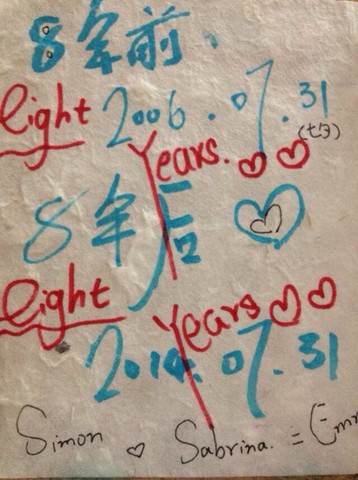 8年前、
eight 2006.07.31
Years. (七夕)
8年后
eight
Years
2014.07.31
Simon ♡ Sabrina. =